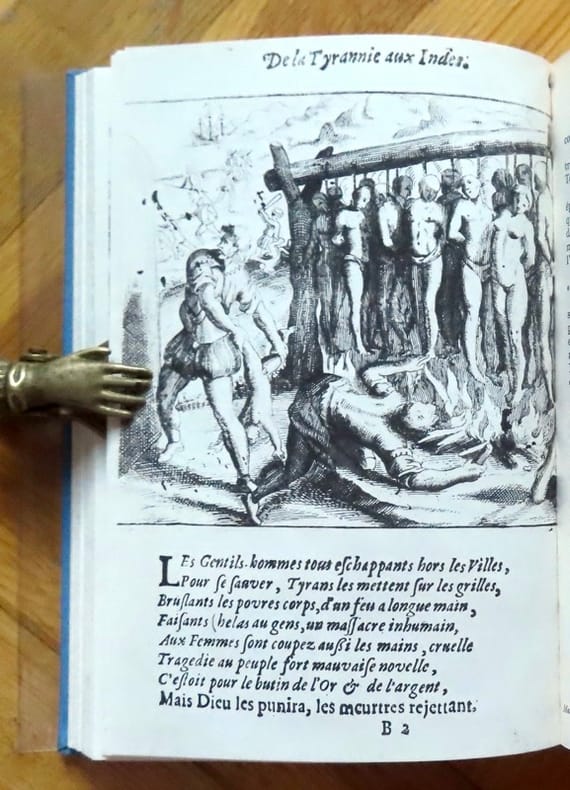 De la Tyrannie aux Indes.
LEs Gentils-hommes tous eſchappants hors les Villes,
Pour ſe ſauver, Tyrans les mettent ſur les grilles,
Bruſlants les povres corps, d'un feu a longue main,
Faiſants (helas au gens, un maſſacre inhumain,
Aux Femmes ſont coupez auſsi les mains, cruelle
Tragedie au peuple fort mauvaiſe novelle,
C'eſtoit pour le butin de l'Or & de l'argent,
Mais Dieu les punira, les meurtres rejettant.
B 2